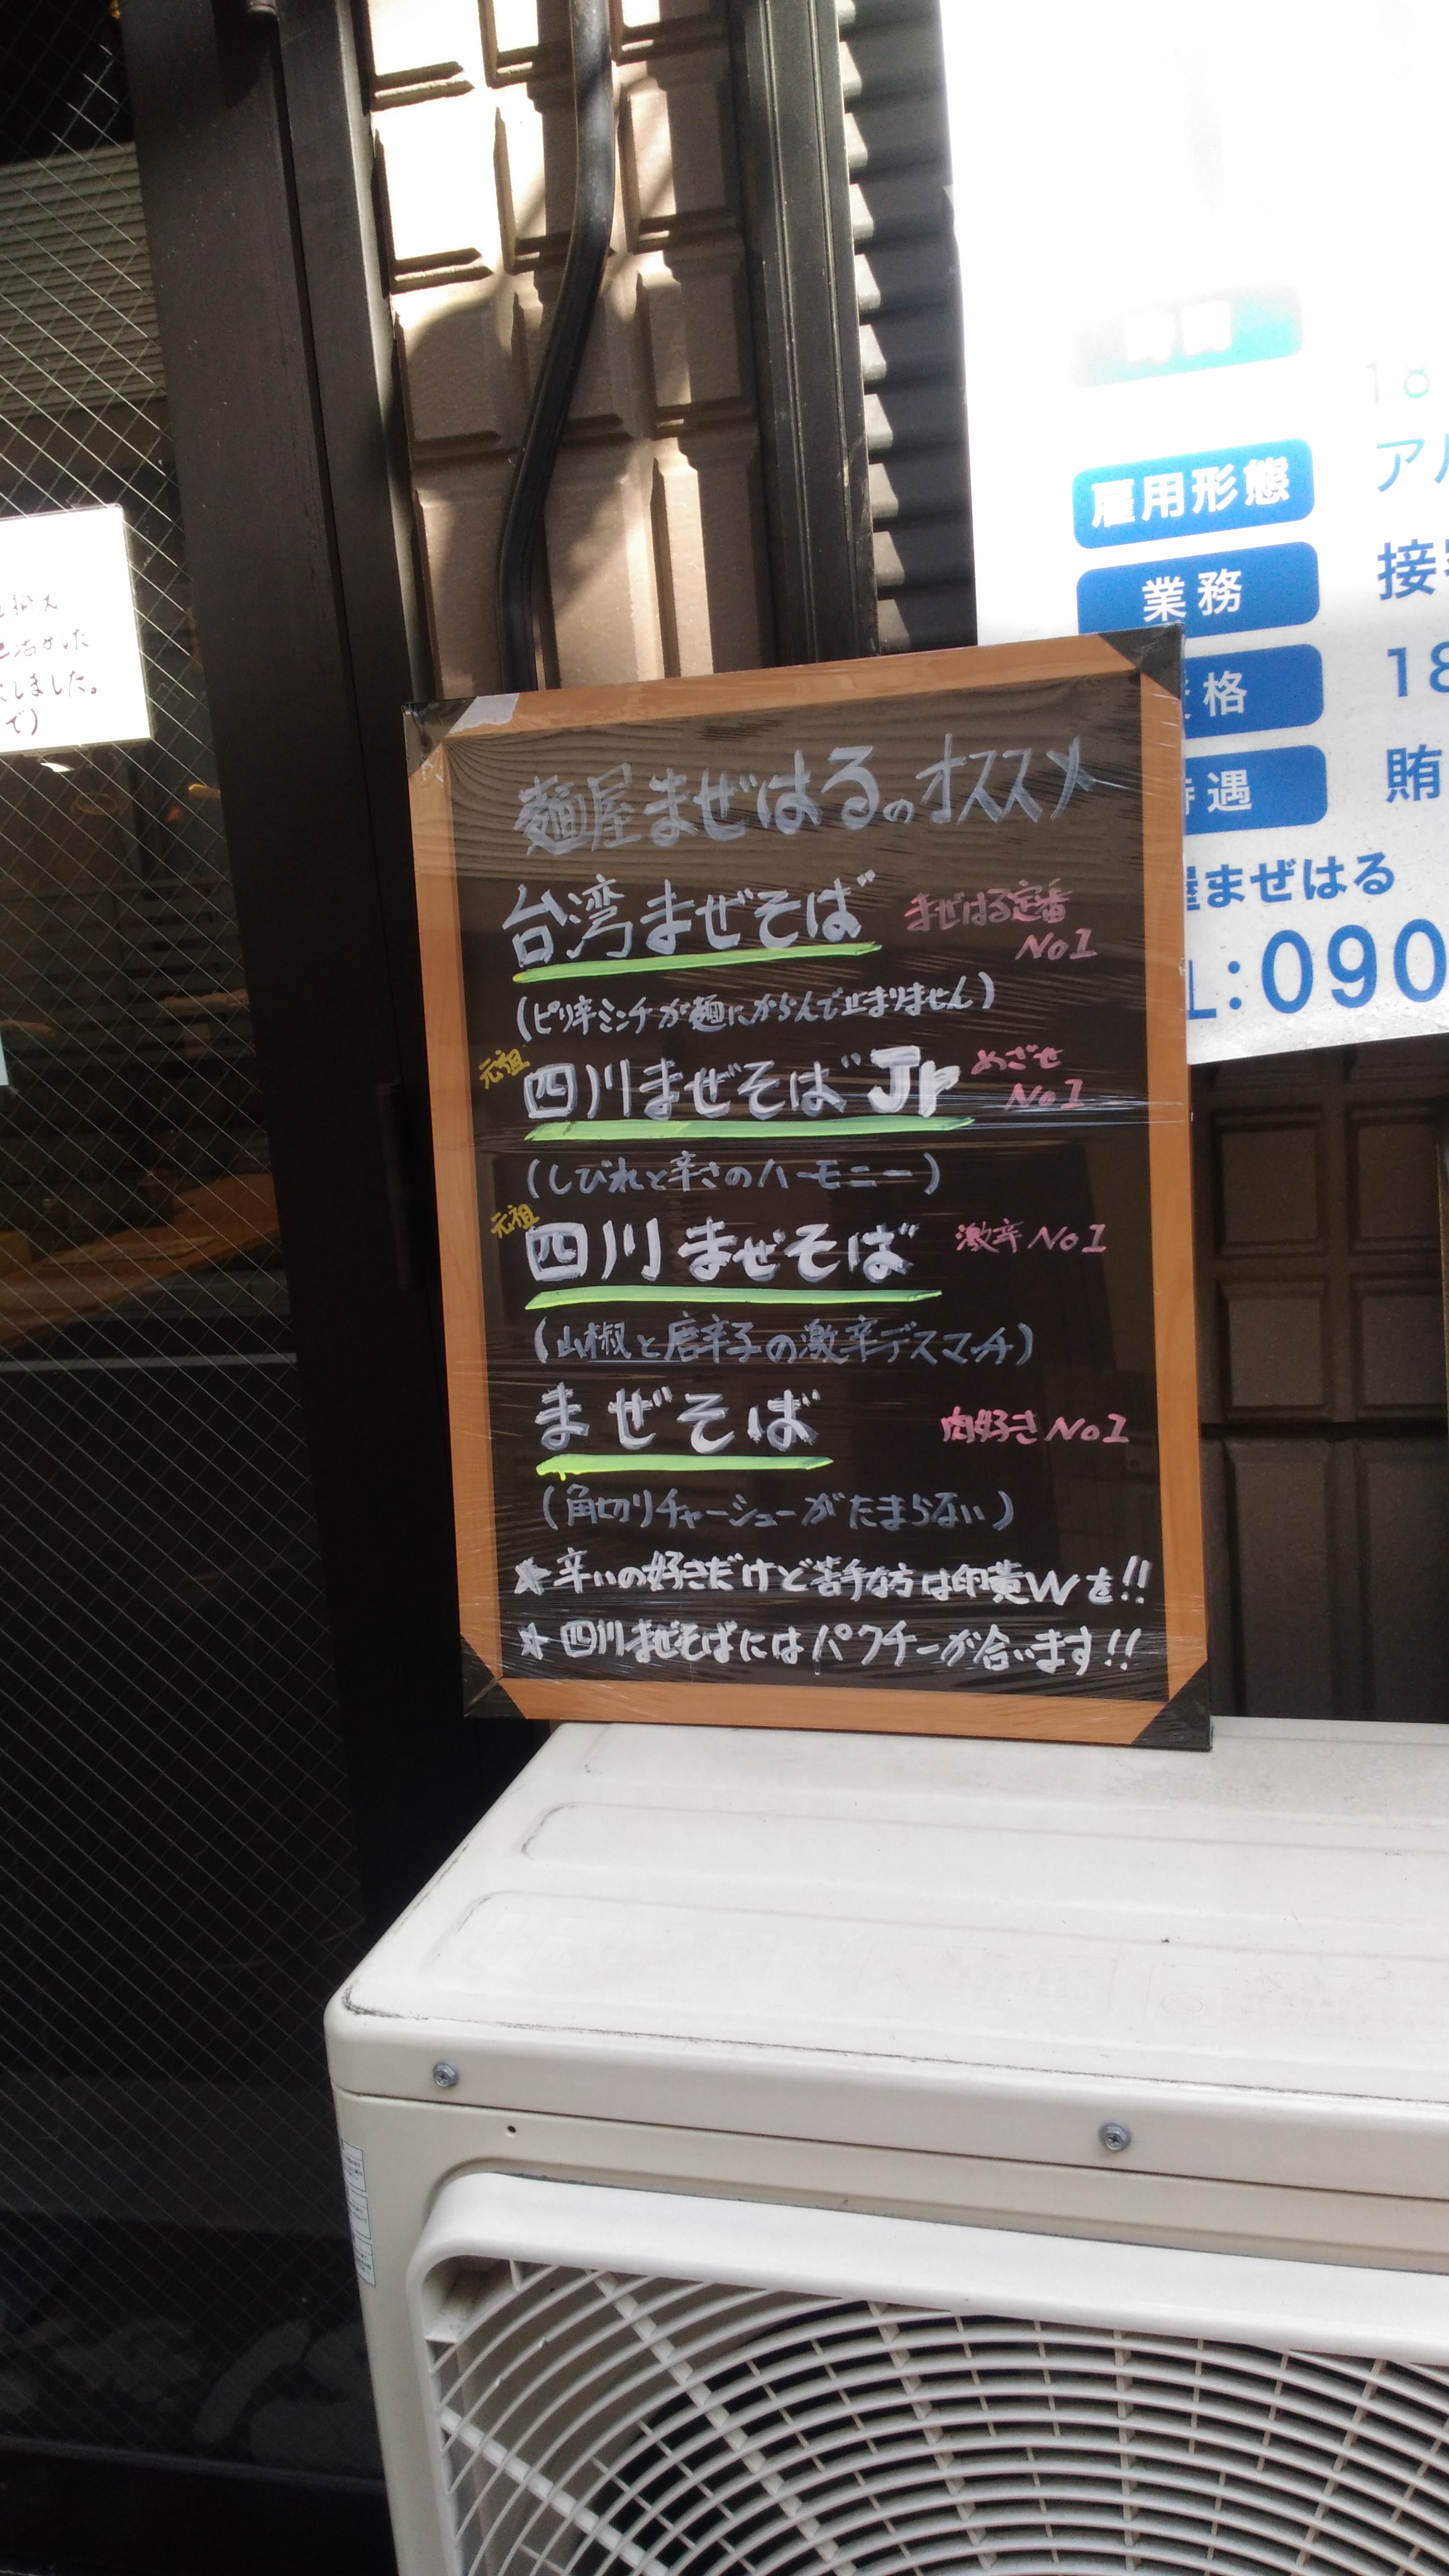 麺屋まぜはるのオススメ
台湾まぜそば まぜはる定番
No1
(ピリ辛ミンチが麺にからんで止まりません)
元祖 四川まぜそばJr めざせ
No1
(しびれと辛さのハーモニー)
元祖 四川まぜそば 激辛No1
(山椒と唐辛子の激辛デスマッチ)
まぜそば 肉好きNo1
(角切りチャーシューがたまらない)
★辛いの好きだけど苦手な方は卵黄Wを!!
★四川まぜそばにはパクチーが合います!!
18
雇用形態 アル
業務 接客
格 18
遇 賄
屋まぜはる
L:090
しました。
で)